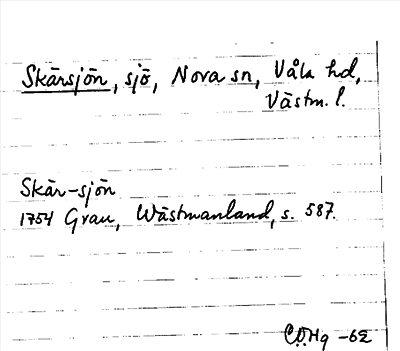 Skärsjön, sjö, Nora sn, Våla hd,
Västm. l.
Skär-sjön
1754 Grau, Wästmanland, s. 587.
C.O.Hg -62